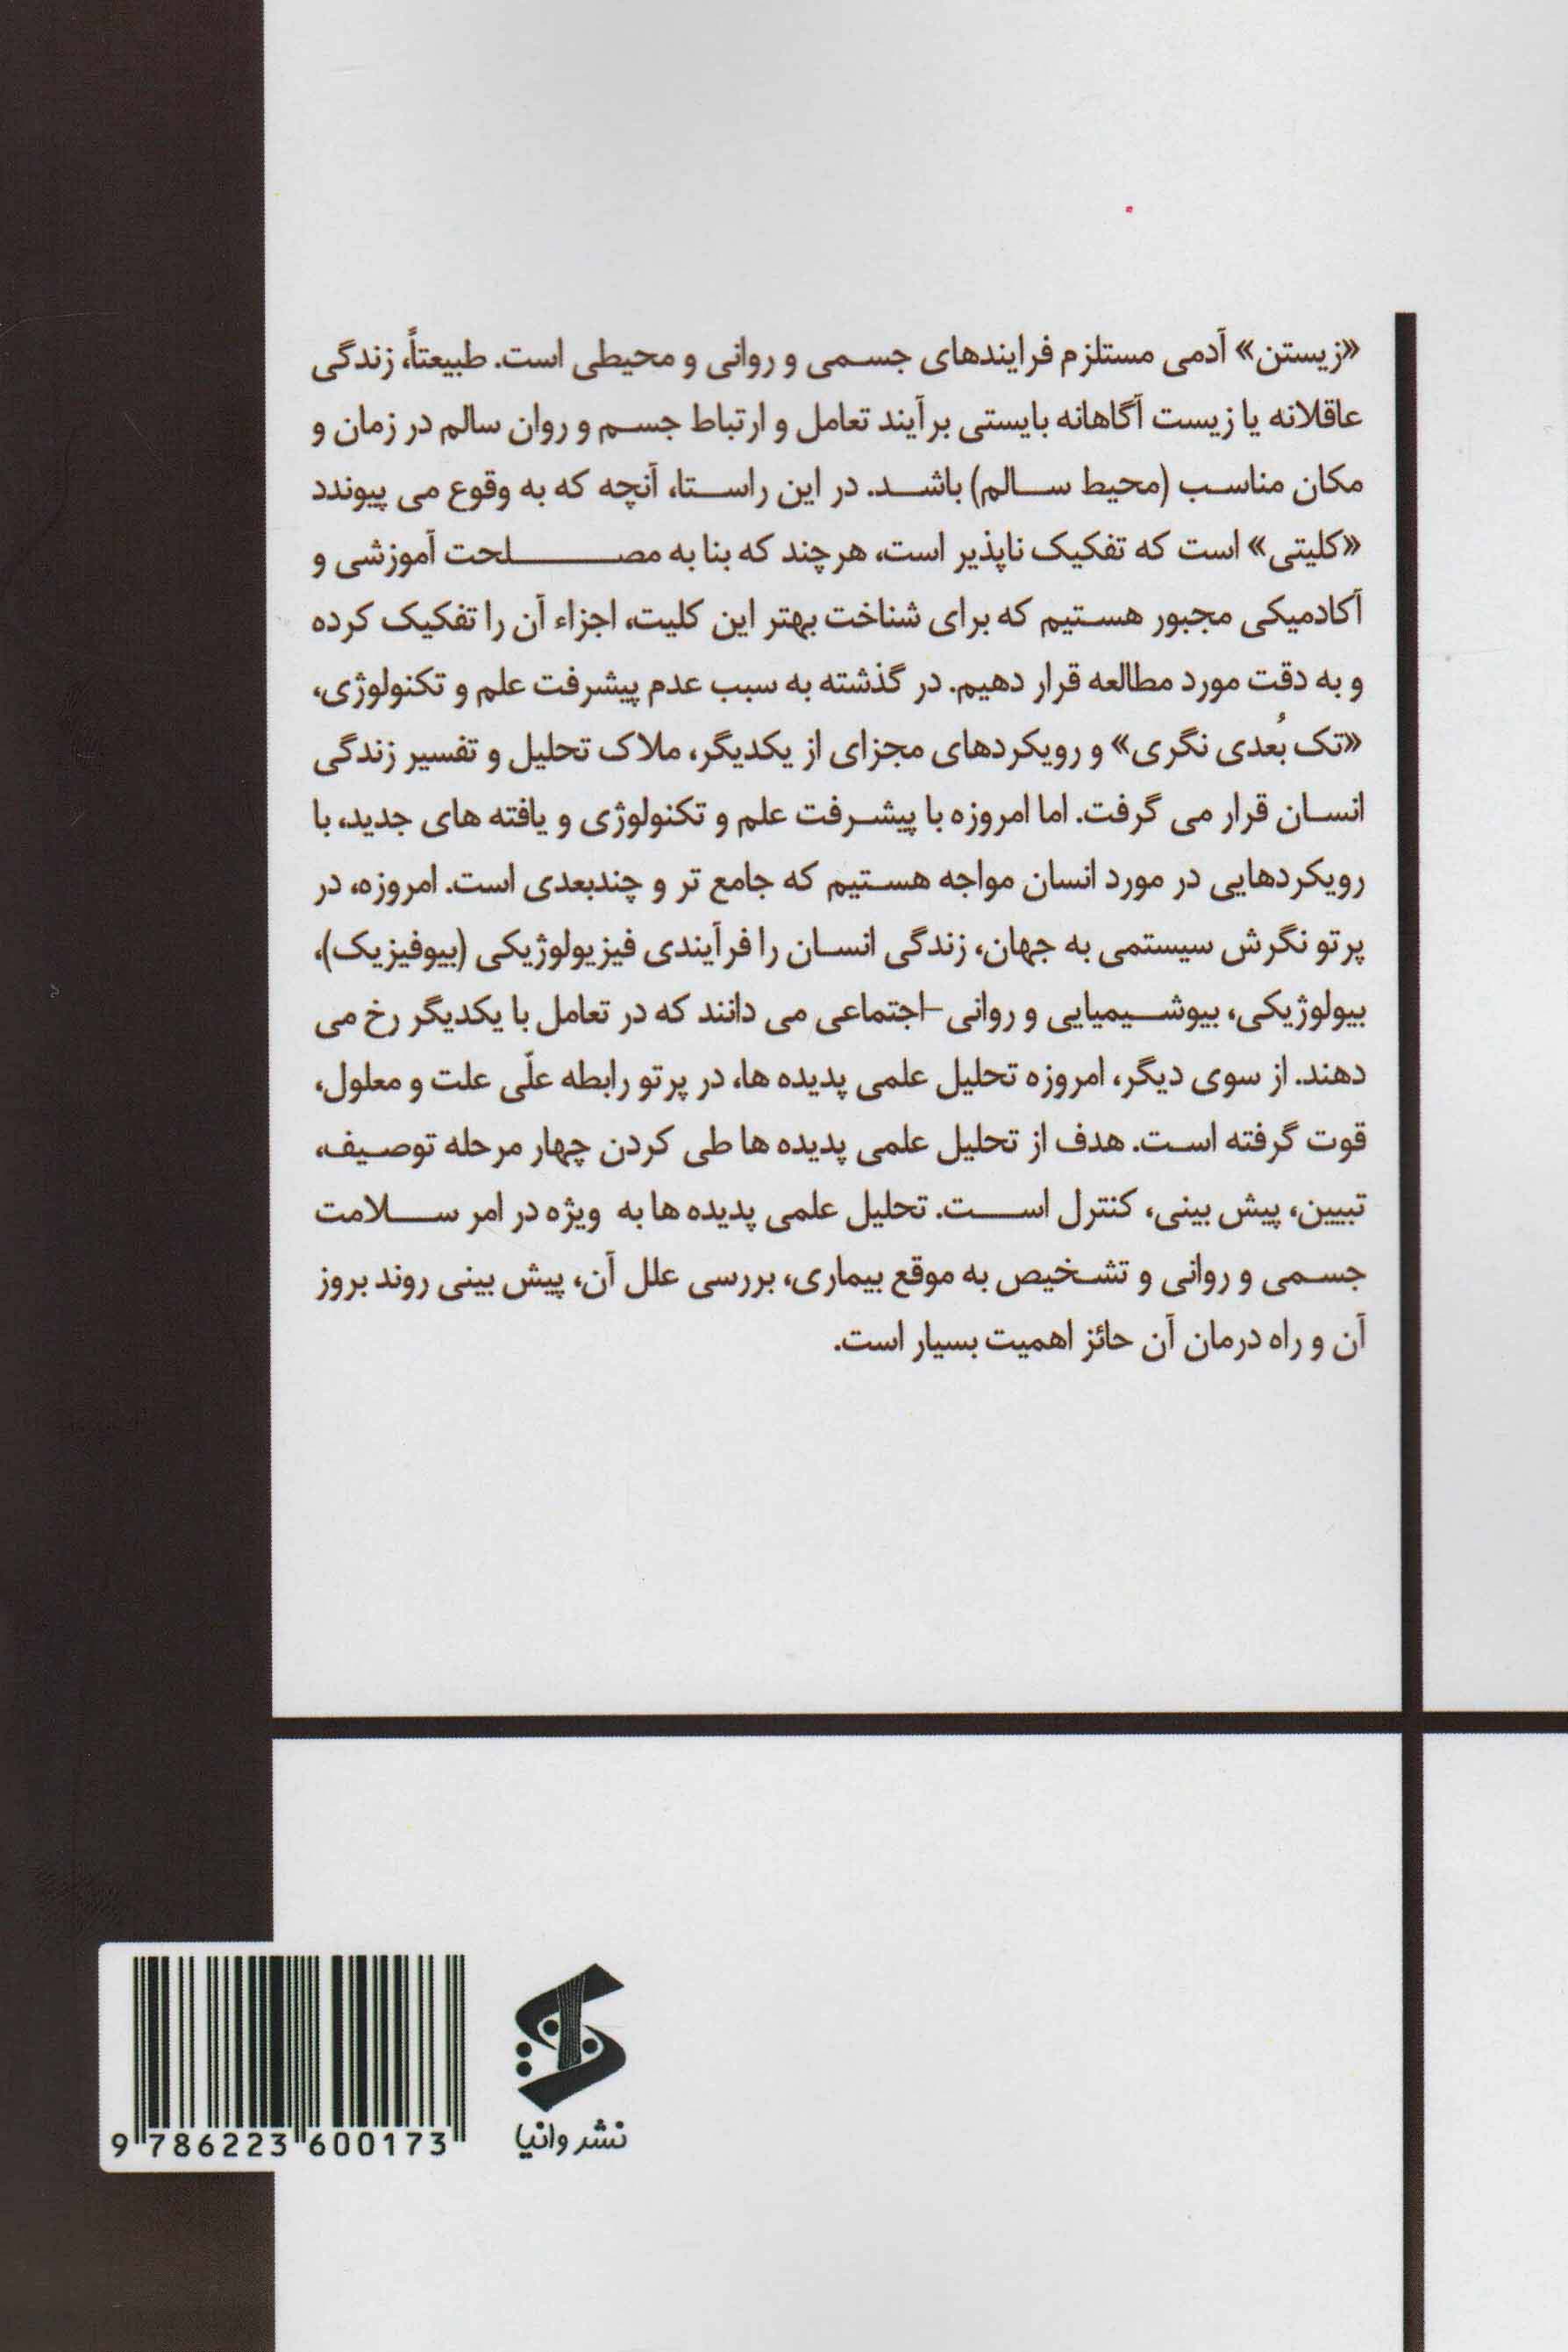 «زیستن» آدمی مستلزم فرایندهای جسمی و روانی و محیطی است. طبیعتاً، زندگی
عاقلانه یا زیست آگاهانه بایستی برآیند تعامل و ارتباط جسم و روان سالم در زمان و
مکان مناسب (محیط سالم) باشد. در این راستا، آنچه که به وقوع می پیوندد
«کلیتی» است که تفکیک ناپذیر است، هرچند که بنا به مصلحت آموزشی و
آکادمیکی مجبور هستیم که برای شناخت بهتر این کلیت، اجزاء آن را تفکیک کرده
و به دقت مورد مطالعه قرار دهیم. در گذشته به سبب عدم پیشرفت علم و تکنولوژی،
«تک بُعدی نگری» و رویکردهای مجزای از یکدیگر، ملاک تحلیل و تفسیر زندگی
انسان قرار می گرفت. اما امروزه با پیشرفت علم و تکنولوژی و یافته های جدید، با
رویکردهایی در مورد انسان مواجه هستیم که جامع تر و چندبعدی است. امروزه، در
پرتو نگرش سیستمی به جهان، زندگی انسان را فرآیندی فیزیولوژیکی (بیوفیزیک)،
بیولوژیکی، بیوشیمیایی و روانی-اجتماعی می دانند که در تعامل با یکدیگر رخ می
دهند. از سوی دیگر، امروزه تحلیل علمی پدیده ها، در پرتو رابطه علّی علت و معلول،
قوت گرفته است. هدف از تحلیل علمی پدیده ها طی کردن چهار مرحله توصیف،
تبیین، پیش بینی، کنترل است. تحلیل علمی پدیده ها به ویژه در امر سلامت
جسمی و روانی و تشخیص به موقع بیماری، بررسی علل آن، پیش بینی روند بروز
آن و راه درمان آن حائز اهمیت بسیار است.
نشر وانیا
9 786223 600173